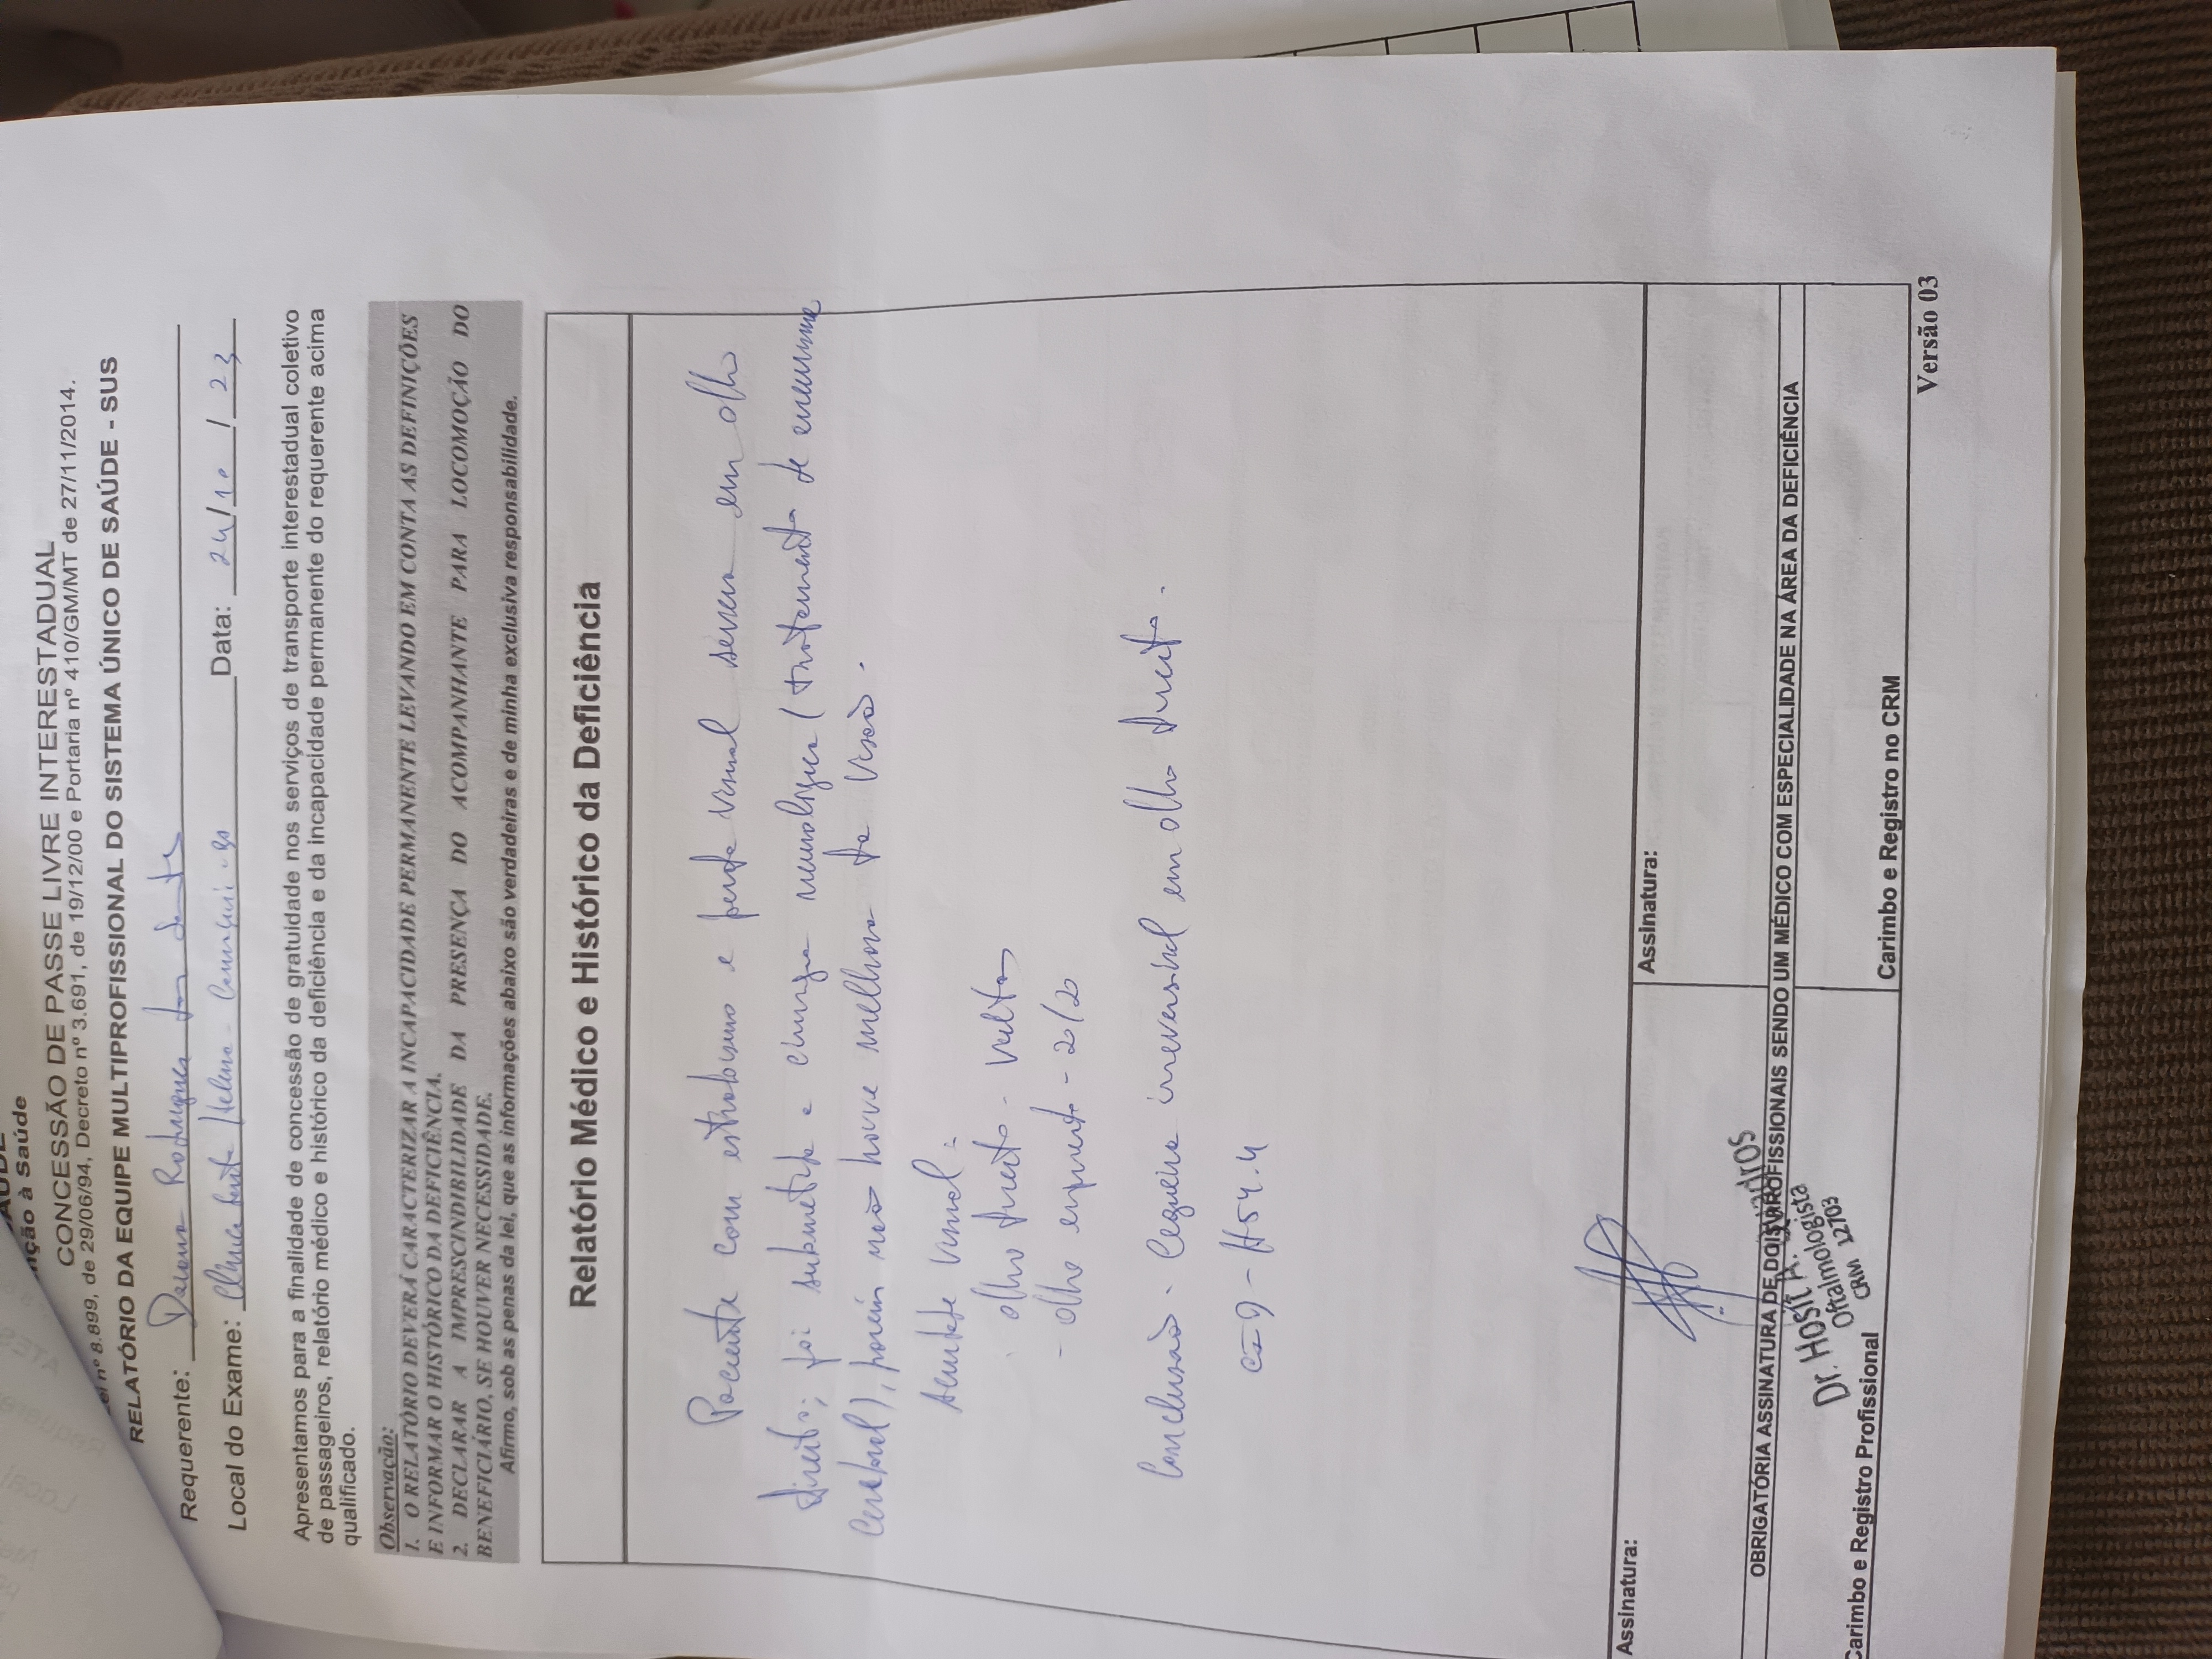 AÚDE
nção à Saúde
CONCESSÃO DE PASSE LIVRE INTERESTADUAL
Lei nº 8.899, de 29/06/94, Decreto nº 3.691, de 19/12/00 e Portaria nº 410/GM/MT de 27/11/2014.
RELATÓRIO DA EQUIPE MULTIPROFISSIONAL DO SISTEMA ÚNICO DE SAÚDE - SUS
Requerente: Rodrigues dos Santos
Local do Exame: Clínica Santa Helena - Camaçari - BA Data: 24/10/23
Apresentamos para a finalidade de concessão de gratuidade nos serviços de transporte interestadual coletivo
de passageiros, relatório médico e histórico da deficiência e da incapacidade permanente do requerente acima
qualificado.
Observação:
1. O RELATÓRIO DEVERÁ CARACTERIZAR A INCAPACIDADE PERMANENTE LEVANDO EM CONTA AS DEFINIÇÕES
E INFORMAR O HISTÓRICO DA DEFICIÊNCIA.
2. DECLARAR A IMPRESCINDIBILIDADE DA PRESENÇA DO ACOMPANHANTE PARA LOCOMOÇÃO DO
BENEFICIÁRIO, SE HOUVER NECESSIDADE.
Afirmo, sob as penas da lei, que as informações abaixo são verdadeiras e de minha exclusiva responsabilidade.
Relatório Médico e Histórico da Deficiência
Paciente com estrabismo e perda visual severa em olho
direito; foi submetida a cirurgia neurológica (tratamento de aneurisma
cerebral), porém não houve melhora da visão.
Acuidade visual:
- olho direito - vultos
- olho esquerdo - 20/20
Conclusão - Cegueira irreversível em olho direito.
CID - H54.4
Assinatura:
Assinatura:
OBRIGATÓRIA ASSINATURA DE DOIS PROFISSIONAIS SENDO UM MÉDICO COM ESPECIALIDADE NA ÁREA DA DEFICIÊNCIA
Dr. Hosit A. Quadros
Oftalmologista
CRM 12703
Carimbo e Registro Profissional
Carimbo e Registro no CRM
Versão 03